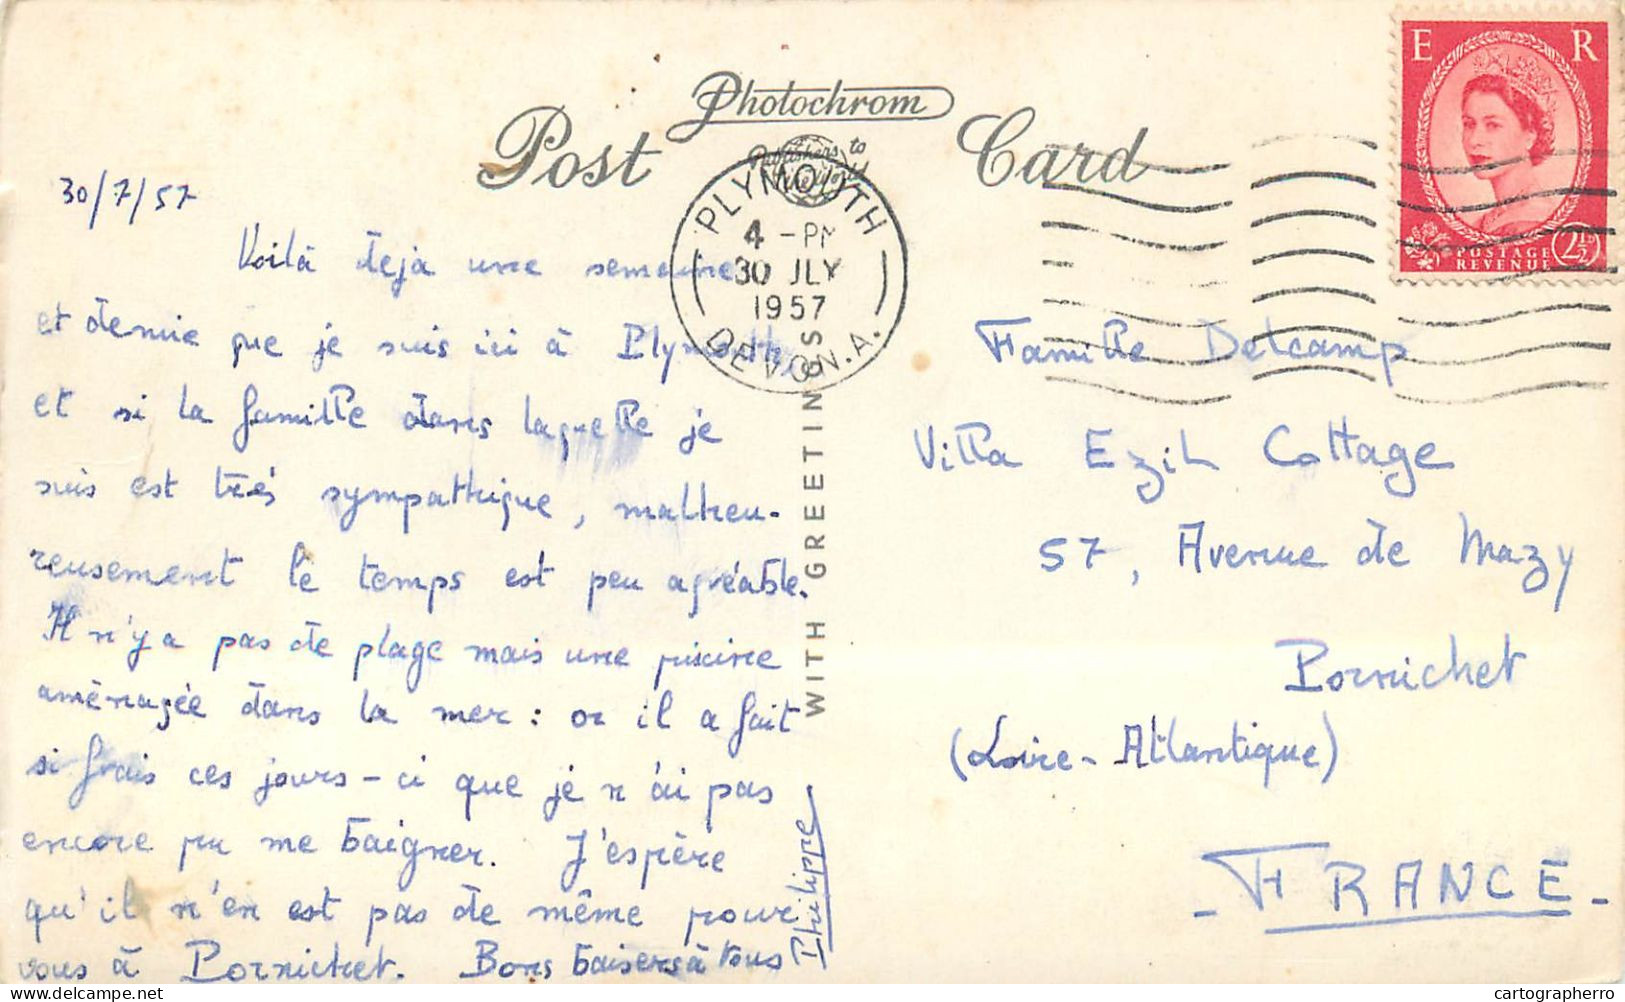 Photochrom
Post Card
Publishers to
PLYMOUTH
4 - PM
30 JLY
1957
DEVON. A.
E R
POSTAGE
REVENUE
2½D
30/7/57
Voilà dejà une semaine
et demie que je suis ici à Plymouth,
et si la famille dans laquelle je
suis est très sympathique, malheu-
reusement le temps est peu agréable.
Il n'y a pas de plage mais une piscine
aménagée dans la mer : or il a fait
si frais ces jours-ci que je n'ai pas
encore pu me baigner. J'espère
qu'il n'en est pas de même pour
vous à Pornichet. Bons baisers à tous
Philippe
WITH GREETINGS
Famille Delcamp
Villa Ezil Cottage
57, Avenue de Mazy
Pornichet
(Loire-Atlantique)
- FRANCE -
© delcampe.net
cartographerro